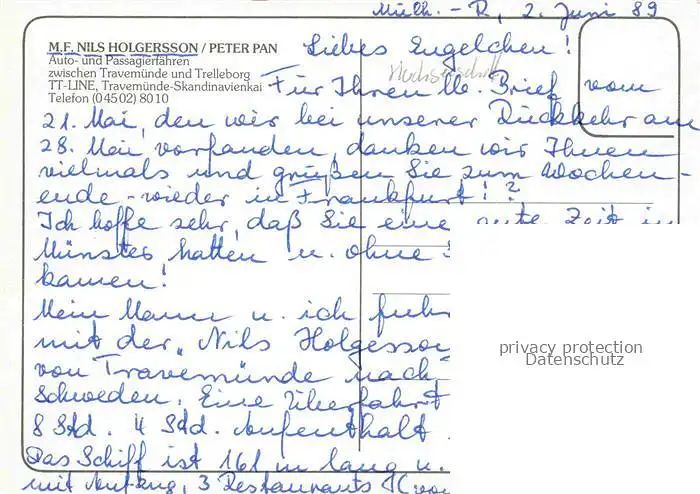 Mülh. - R, 2. Juni 89
M.F. NILS HOLGERSSON / PETER PAN
Auto- und Passagierfähren
zwischen Travemünde und Trelleborg
TT-LINE, Travemünde-Skandinavienkai
Telefon (04502) 8010
Liebes Engelchen!
Für Ihren lb. Brief vom
21. Mai, den wir bei unserer Rückkehr am
28. Mai vorfanden, danken wir Ihnen
vielmals und grüßen Sie zum Wochen-
ende - wieder in Frankfurt! ?
Ich hoffe sehr, daß Sie eine gute Zeit in
Münster hatten u. ohne
kamen!
Mein Mann u. ich fuhr
mit der „Nils Holgersson
von Travemünde nach
Schweden. Eine Überfahrt
8 Std. 4 Std. Aufenthalt
Das Schiff ist 161 m lang u.
mit Aufzug, 3 Restaurants
privacy protection
Datenschutz